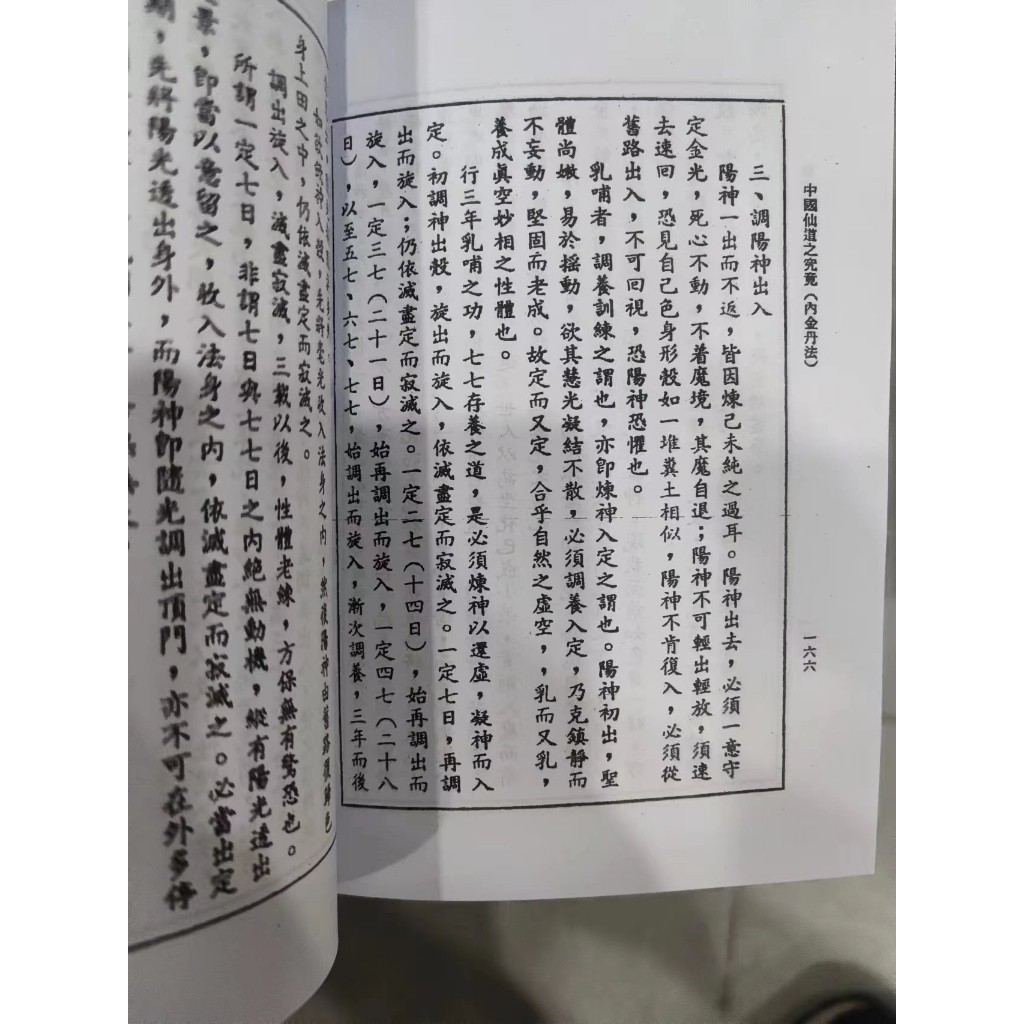 中國仙道之究竟(內金丹法)
一六六
三、調陽神出入
陽神一出而不返,皆因煉己未純之過耳。陽神出去,必須一意守
定金光,死心不動,不着魔境,其魔自退;陽神不可輕出輕放,須速
去速回,恐見自己色身形殼如一堆糞土相似,陽神不肯復入,必須從
舊路出入,不可回視,恐陽神恐懼也。
乳哺者,調養訓練之謂也,亦即煉神入定之謂也。陽神初出,聖
體尚嫩,易於搖動,欲其慧光凝結不散,必須調養入定,乃克鎮靜而
不妄動,堅固而老成。故定而又定,合乎自然之虛空,,乳而又乳,
養成真空妙相之性體也。
行三年乳哺之功,七七存養之道,是必須煉神以還虛,凝神而入
定。初調神出殼,旋出而旋入,依滅盡定而寂滅之。一定七日,再調
出而旋入;仍依滅盡定而寂滅之。一定二七(十四日),始再調出而
旋入,一定三七(二十一日),始再調出而旋入,一定四七(二十八
日),以至五七、六七、七七,始調出而旋入,漸次調養,三年而後
光收入法身之內,然後陽神由舊路復歸色
身上田之中,仍依滅盡定而寂滅之。
調出旋入,滅盡寂滅,三載以後,性體老練,方保無有驚恐也。
所謂一定七日,非謂七日與七七日之內絕無動機,縱有陽光透出
景,即當以意留之,收入法身之內,依滅盡定而寂滅之。必當出定
期,先將陽光透出身外,而陽神即隨光調出頂門,亦不可在外多停